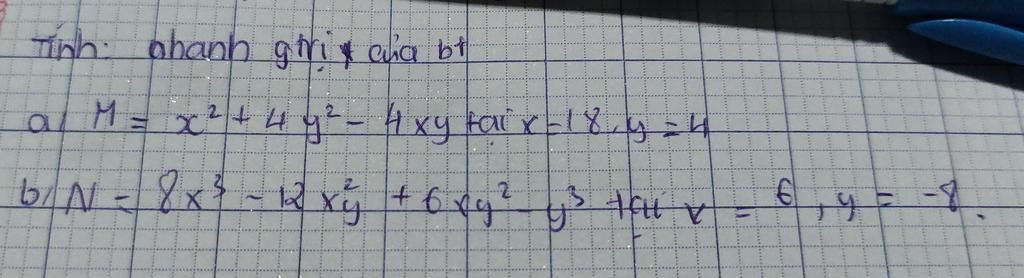 Tính: nhanh gtrị của bt
a) M = x² + 4y² - 4xy tại x = 18, y = 4
b) N = 8x³ - 12x²y + 6xy² - y³ tại x = 6, y = -8.